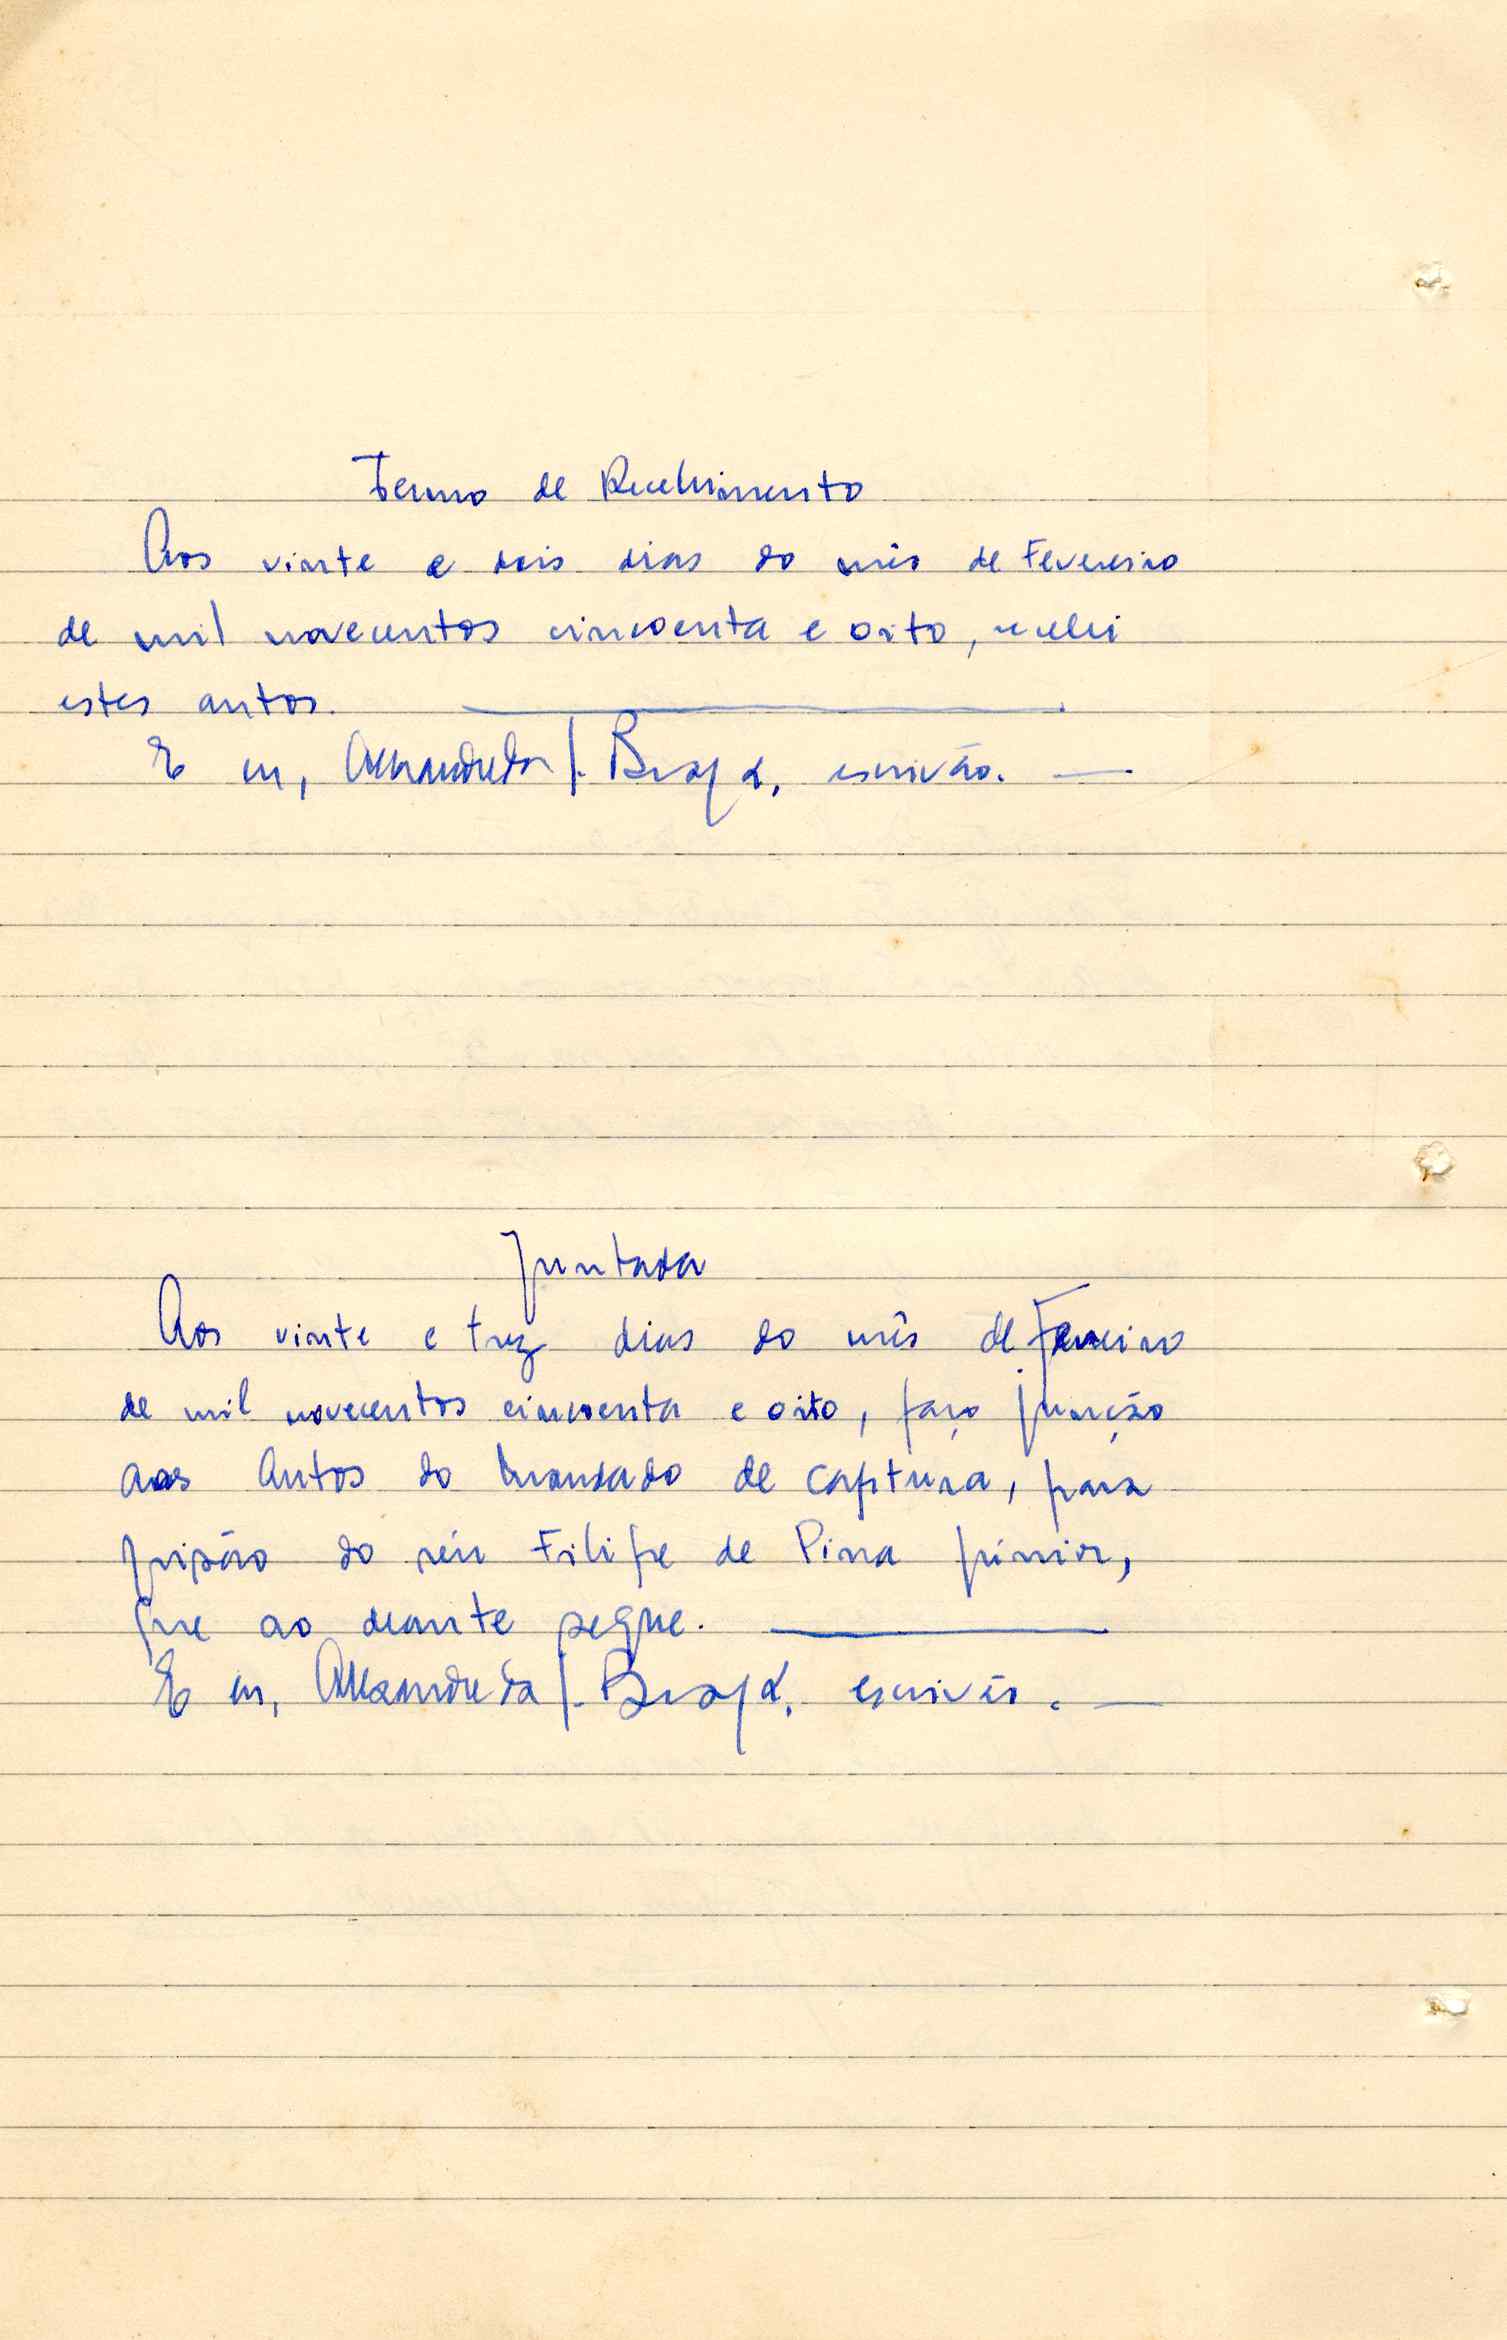 Termo de Recebimento
Aos vinte e dois dias do mês de Fevereiro
de mil novecentos cincoenta e oito, recebi
estes autos.
E eu, Alexandre da J. Braga, escrivão.
Juntada
Aos vinte e trez dias do mês de
de mil novecentos cincoenta e oito, faço junção
aos Autos do Mandado de Captura, para
prisão do réu Filipe de Pina Júnior,
que ao deante segue.
E eu, Alexandre da J. Braga, escrivão.